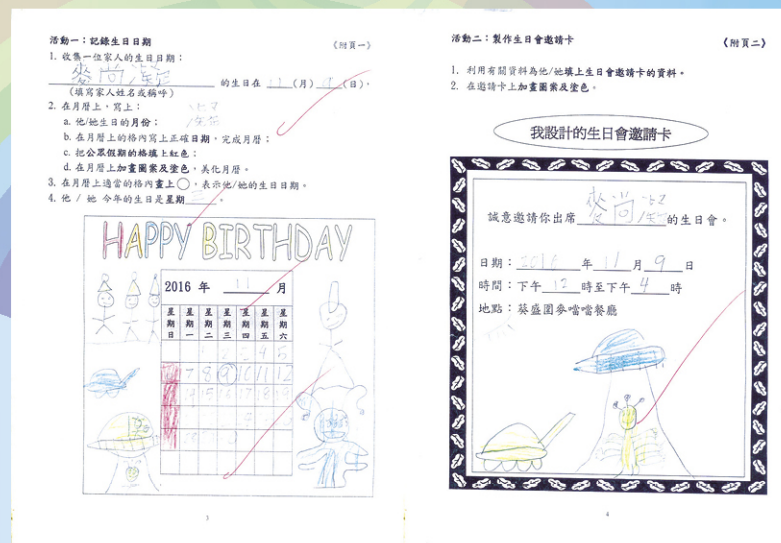 活動一：記錄生日日期
（附頁一）
1. 收集一位家人的生日日期：
麥尚 的生日在 11 (月) 9 (日)。
(填寫家人姓名或稱呼)
2. 在月曆上，寫上：
a. 他/她生日的月份；
b. 在月曆上的格內寫上正確日期，完成月曆；
c. 把公眾假期的格填上紅色；
d. 在月曆上加畫圖案及塗色，美化月曆。
3. 在月曆上適當的格內畫上○，表示他/她的生日日期。
4. 他 / 她 今年的生日是星期 三 。
HAPPY BIRTHDAY
2016 年 11 月
星期日 星期一 星期二 星期三 星期四 星期五 星期六
1 2 3 4 5
7 8 9 10 11 12
14 15 16 17 18 19
3
活動二：製作生日會邀請卡
（附頁二）
1. 利用有關資料為他/她填上生日會邀請卡的資料。
2. 在邀請卡上加畫圖案及塗色。
我設計的生日會邀請卡
誠意邀請你出席 麥尚 的生日會。
日期： 2016 年 11 月 9 日
時間：下午 12 時至下午 4 時
地點：葵盛圍麥噹噹餐廳
4